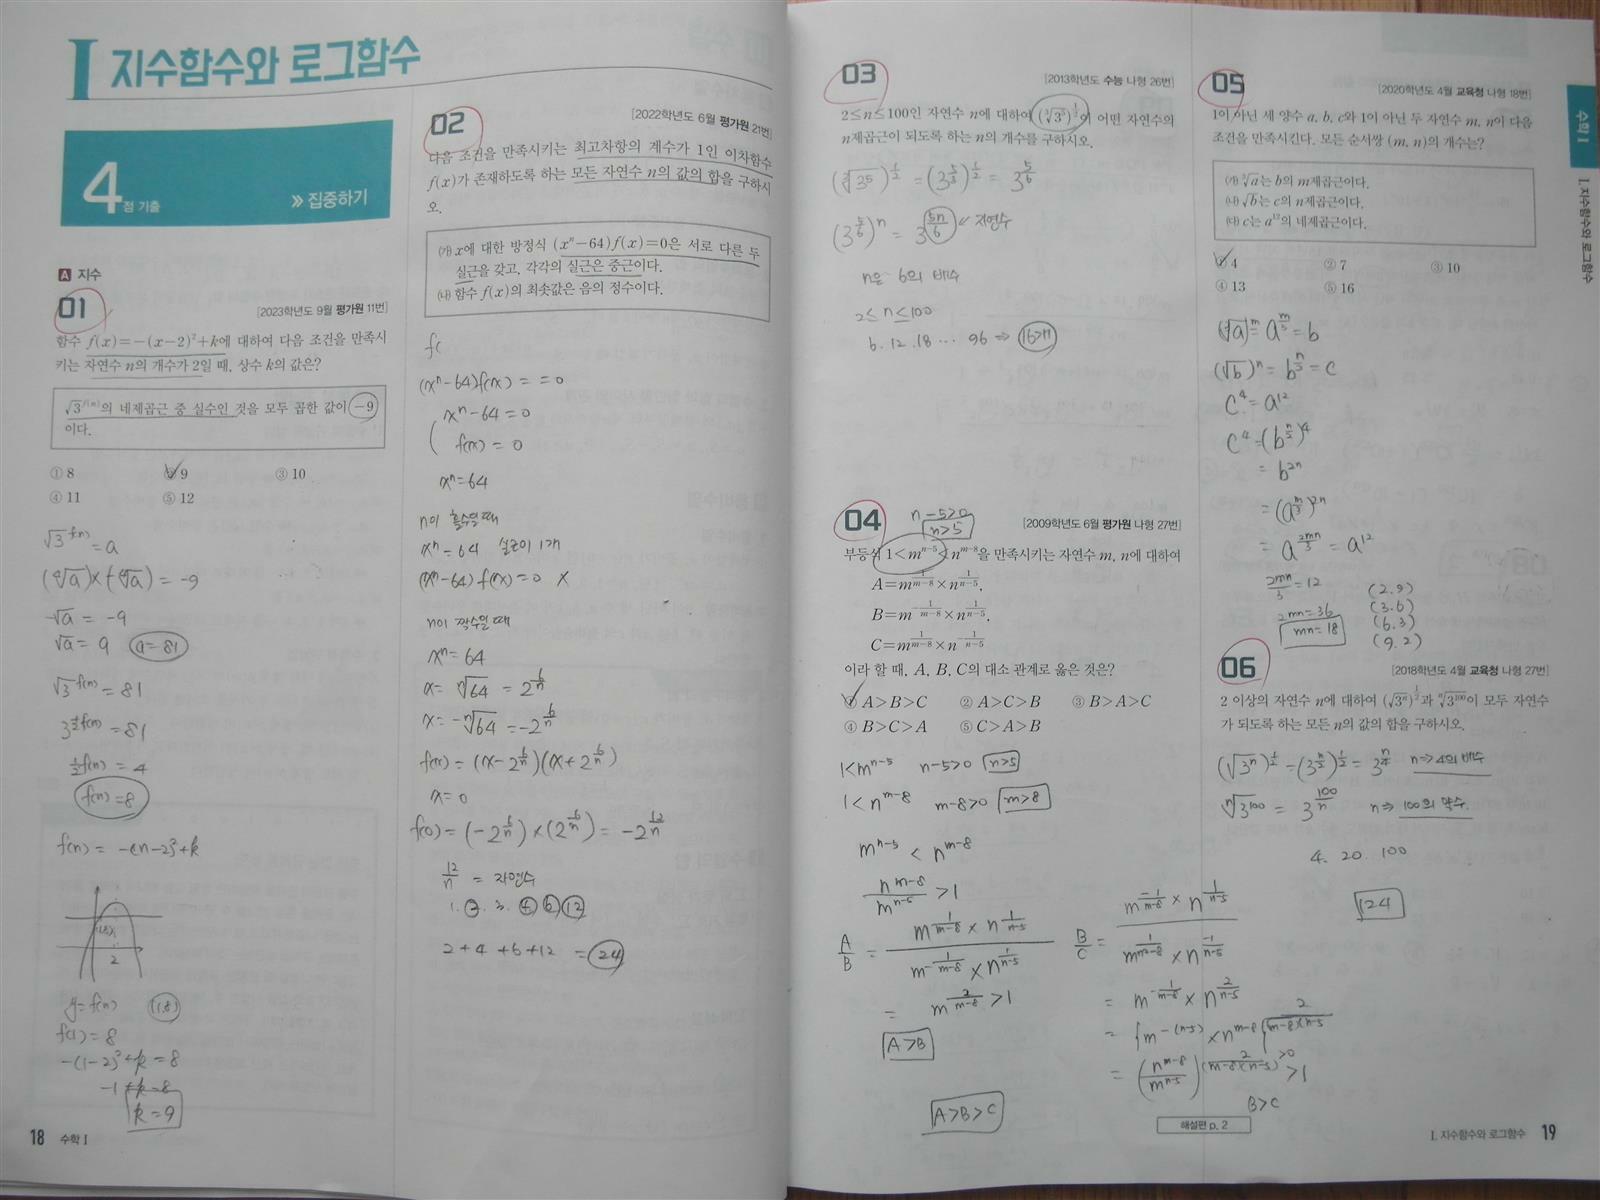 I 지수함수와 로그함수
4점 기출
≫ 집중하기
A 지수
01
[2023학년도 9월 평가원 11번]
함수 f(x)=-(x-2)²+k에 대하여 다음 조건을 만족시
키는 자연수 n의 개수가 2일 때, 상수 k의 값은?
√3^f(n)의 네제곱근 중 실수인 것을 모두 곱한 값이 -9
이다.
① 8 ② 9 ③ 10
④ 11 ⑤ 12
√3^f(n) = a
(⁴√a)×(-⁴√a) = -9
-√a = -9
√a = 9 a=81
√3^f(n) = 81
3^½f(n) = 81
½f(n) = 4
f(n)=8
f(n) = -(n-2)²+k
2
y=f(n) (1,8)
f(1)=8
-(1-2)²+k=8
-1+k=8
k=9
18 수학 I
02
[2022학년도 6월 평가원 21번]
다음 조건을 만족시키는 최고차항의 계수가 1인 이차함수
f(x)가 존재하도록 하는 모든 자연수 n의 값의 합을 구하시
오.
(가) x에 대한 방정식 (xⁿ-64)f(x)=0은 서로 다른 두
실근을 갖고, 각각의 실근은 중근이다.
(나) 함수 f(x)의 최솟값은 음의 정수이다.
f(
(xⁿ-64)f(x) = =0
xⁿ-64=0
f(x)=0
xⁿ=64
n이 홀수일때
xⁿ=64 실근이 1개
(xⁿ-64)f(x)=0 X
n이 짝수일때
xⁿ=64
x=ⁿ√64 = 2^(6/n)
x=-ⁿ√64 = -2^(6/n)
f(x) = (x-2^(6/n))(x+2^(6/n))
x=0
f(0) = (-2^(6/n))×(2^(6/n)) = -2^(12/n)
12/n = 자연수
1. 2. 3. 4 6 12
2+4+6+12 = 24
03
[2013학년도 수능 나형 26번]
2≤n≤100인 자연수 n에 대하여 (³√3⁵)^½이 어떤 자연수의
n제곱근이 되도록 하는 n의 개수를 구하시오.
(³√3⁵)^½ = (3^(5/3))^½ = 3^(5/6)
(3^(5/6))ⁿ = 3^(5n/6) ← 자연수
n은 6의 배수
2≤n≤100
6. 12. 18 ··· 96 ⇒ 16개
04
n-5>0
n>5
[2009학년도 6월 평가원 나형 27번]
부등식 1<m^(n-5)<n^(m-8)을 만족시키는 자연수 m, n에 대하여
A=m^(1/(m-8))×n^(1/(n-5)),
B=m^(-1/(m-8))×n^(1/(n-5)),
C=m^(1/(m-8))×n^(-1/(n-5))
이라 할 때, A, B, C의 대소 관계로 옳은 것은?
① A>B>C ② A>C>B ③ B>A>C
④ B>C>A ⑤ C>A>B
1<m^(n-5) n-5>0 n>5
1<n^(m-8) m-8>0 m>8
m^(n-5) < n^(m-8)
n^(m-8)/m^(n-5) >1
A/B = (m^(1/(m-8))×n^(1/(n-5)))/(m^(-1/(m-8))×n^(1/(n-5)))
= m^(2/(m-8)) >1
A>B
A>B>C
B/C = (m^(-1/(m-8))×n^(1/(n-5)))/(m^(1/(m-8))×n^(-1/(n-5)))
= m^(-1/(m-8))×n^(2/(n-5))
= {m^(-(n-5))×n^(m-8)}^(2/(m-8)(n-5))
= (n^(m-8)/m^(n-5))^(2/(m-8)(n-5)) >0 >1
B>C
해설편 p. 2
05
[2020학년도 4월 교육청 나형 18번]
1이 아닌 세 양수 a, b, c와 1이 아닌 두 자연수 m, n이 다음
조건을 만족시킨다. 모든 순서쌍 (m, n)의 개수는?
(가) ³√a는 b의 m제곱근이다.
(나) √b는 c의 n제곱근이다.
(다) c는 a¹²의 네제곱근이다.
① 4 ② 7 ③ 10
④ 13 ⑤ 16
(³√a)^m = a^(m/3) = b
(√b)ⁿ = b^(n/2) = c
c⁴ = a¹²
c⁴ = (b^(n/2))⁴
= b^(2n)
= (a^(m/3))^(2n)
= a^(2mn/3) = a¹²
2mn/3 = 12
2mn=36
mn=18
(2.9)
(3.6)
(6.3)
(9.2)
06
[2018학년도 4월 교육청 나형 27번]
2 이상의 자연수 n에 대하여 (√3ⁿ)^½과 ⁿ√3¹⁰⁰이 모두 자연수
가 되도록 하는 모든 n의 값의 합을 구하시오.
(√3ⁿ)^½ = (3^(n/2))^½ = 3^(n/4) n→4의 배수
ⁿ√3¹⁰⁰ = 3^(100/n) n⇒ 100의 약수
4. 20. 100
124
수학 I
I. 지수함수와 로그함수
I. 지수함수와 로그함수 19